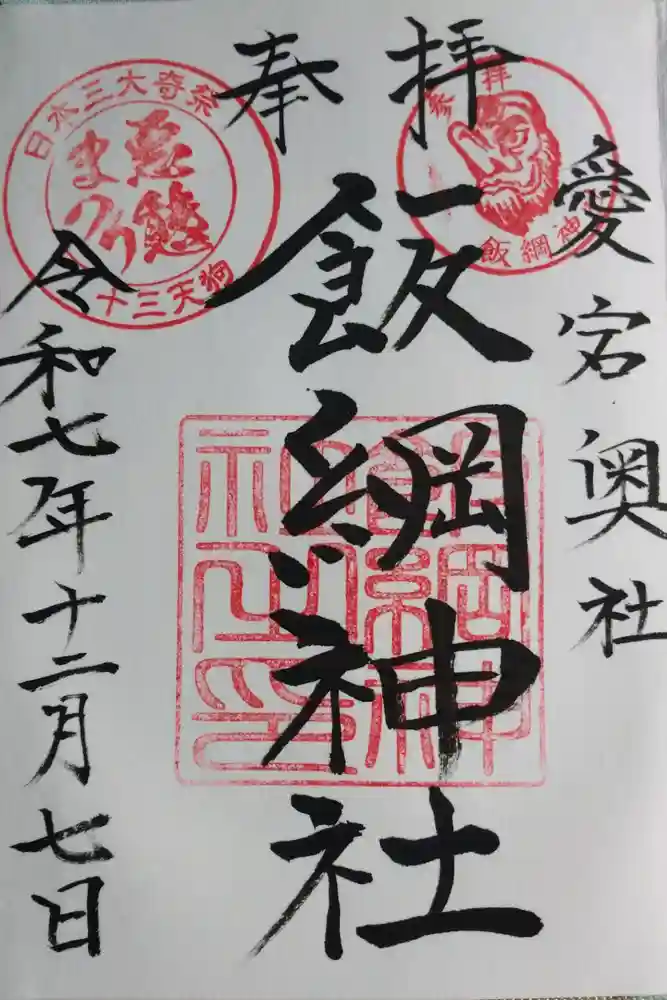 愛宕奥社
奉拝
飯綱神社
令和七年十二月七日
参拝
飯綱神
日本三大奇祭
悪態
まつり
十三天狗
飯綱神
社之印